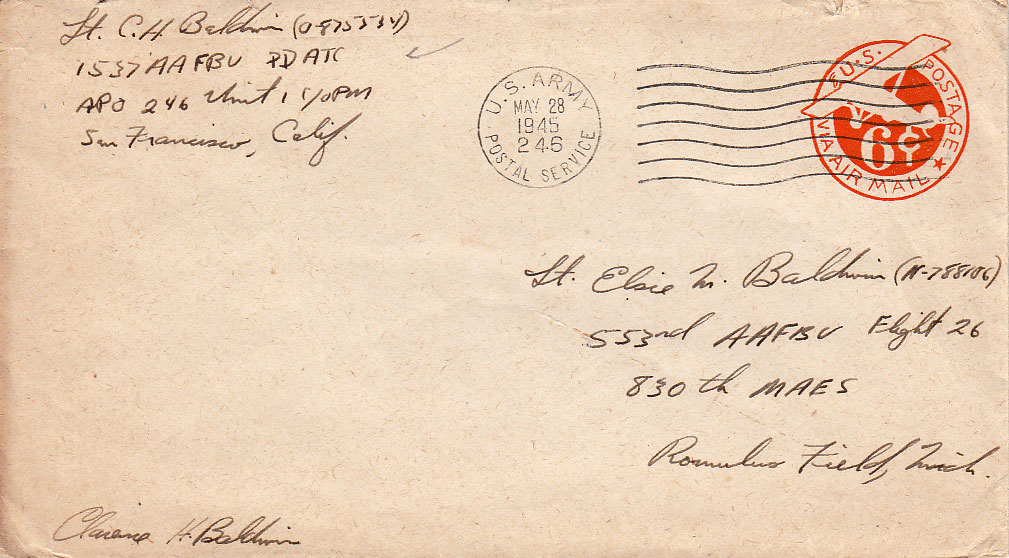 Lt. C. H. Baldwin (O-875534)
1537 AAFBU PDATC
APO 246 Unit 1 c/o PM
San Francisco, Calif.
U.S. ARMY
MAY 28
1945
246
POSTAL SERVICE
U.S. POSTAGE
6¢
VIA AIR MAIL
Lt. Elsie M. Baldwin (N-788106)
553rd AAFBU Flight 26
830th MAES
Romulus Field, Mich.
Clarence H. Baldwin